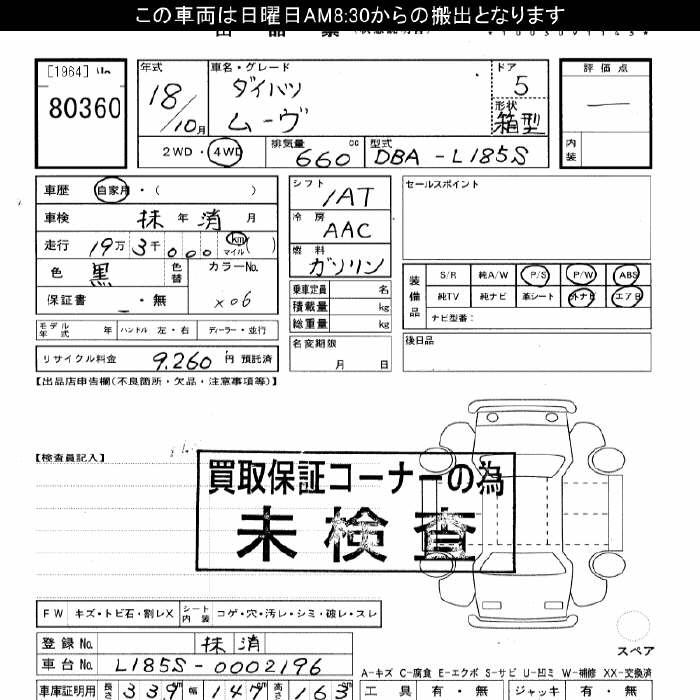 この車両は日曜日AM8:30からの搬出となります
[1964]
80360
年式 車名・グレード ドア 評価点
18/10月 ダイハツ 5
ムーヴ 形状 箱型
2WD・4WD 排気量 cc 660 型式 DBA-L185S 内装
車歴 自家用・( ) シフト 1AT セールスポイント
車検 抹 年 消 月 冷房 AAC
走行 19万3千000 km マイル ( ) 燃料 ガソリン
色 黒 色替 カラーNo. X06
保証書 ・無
乗車定員 名
積載量 kg
総重量 kg
装備品 S/R 純A/W P/S P/W ABS
純TV 純ナビ 革シート 外ナビ エアB
ナビ型番:
モデル年式 年 ハンドル 左・右 ディーラー・並行
名変期限 月 日
後日品
リサイクル料金 9.260円 預託済
【出品店申告欄(不良箇所・欠品・注意事項等)】
【検査員記入】
買取保証コーナーの為
未検査
FW キズ・トビ石・割レX シート内装 コゲ・穴・汚レ・シミ・破レ・スレ
登録No. 抹消
スペア
車台No. L185S-0002196
A-キズ C-腐食 E-エクボ S-サビ U-凹ミ W-補修 XX-交換済
車庫証明用 長さ 339 幅 147 高さ 163
工具 有・無 ジャッキ 有・無